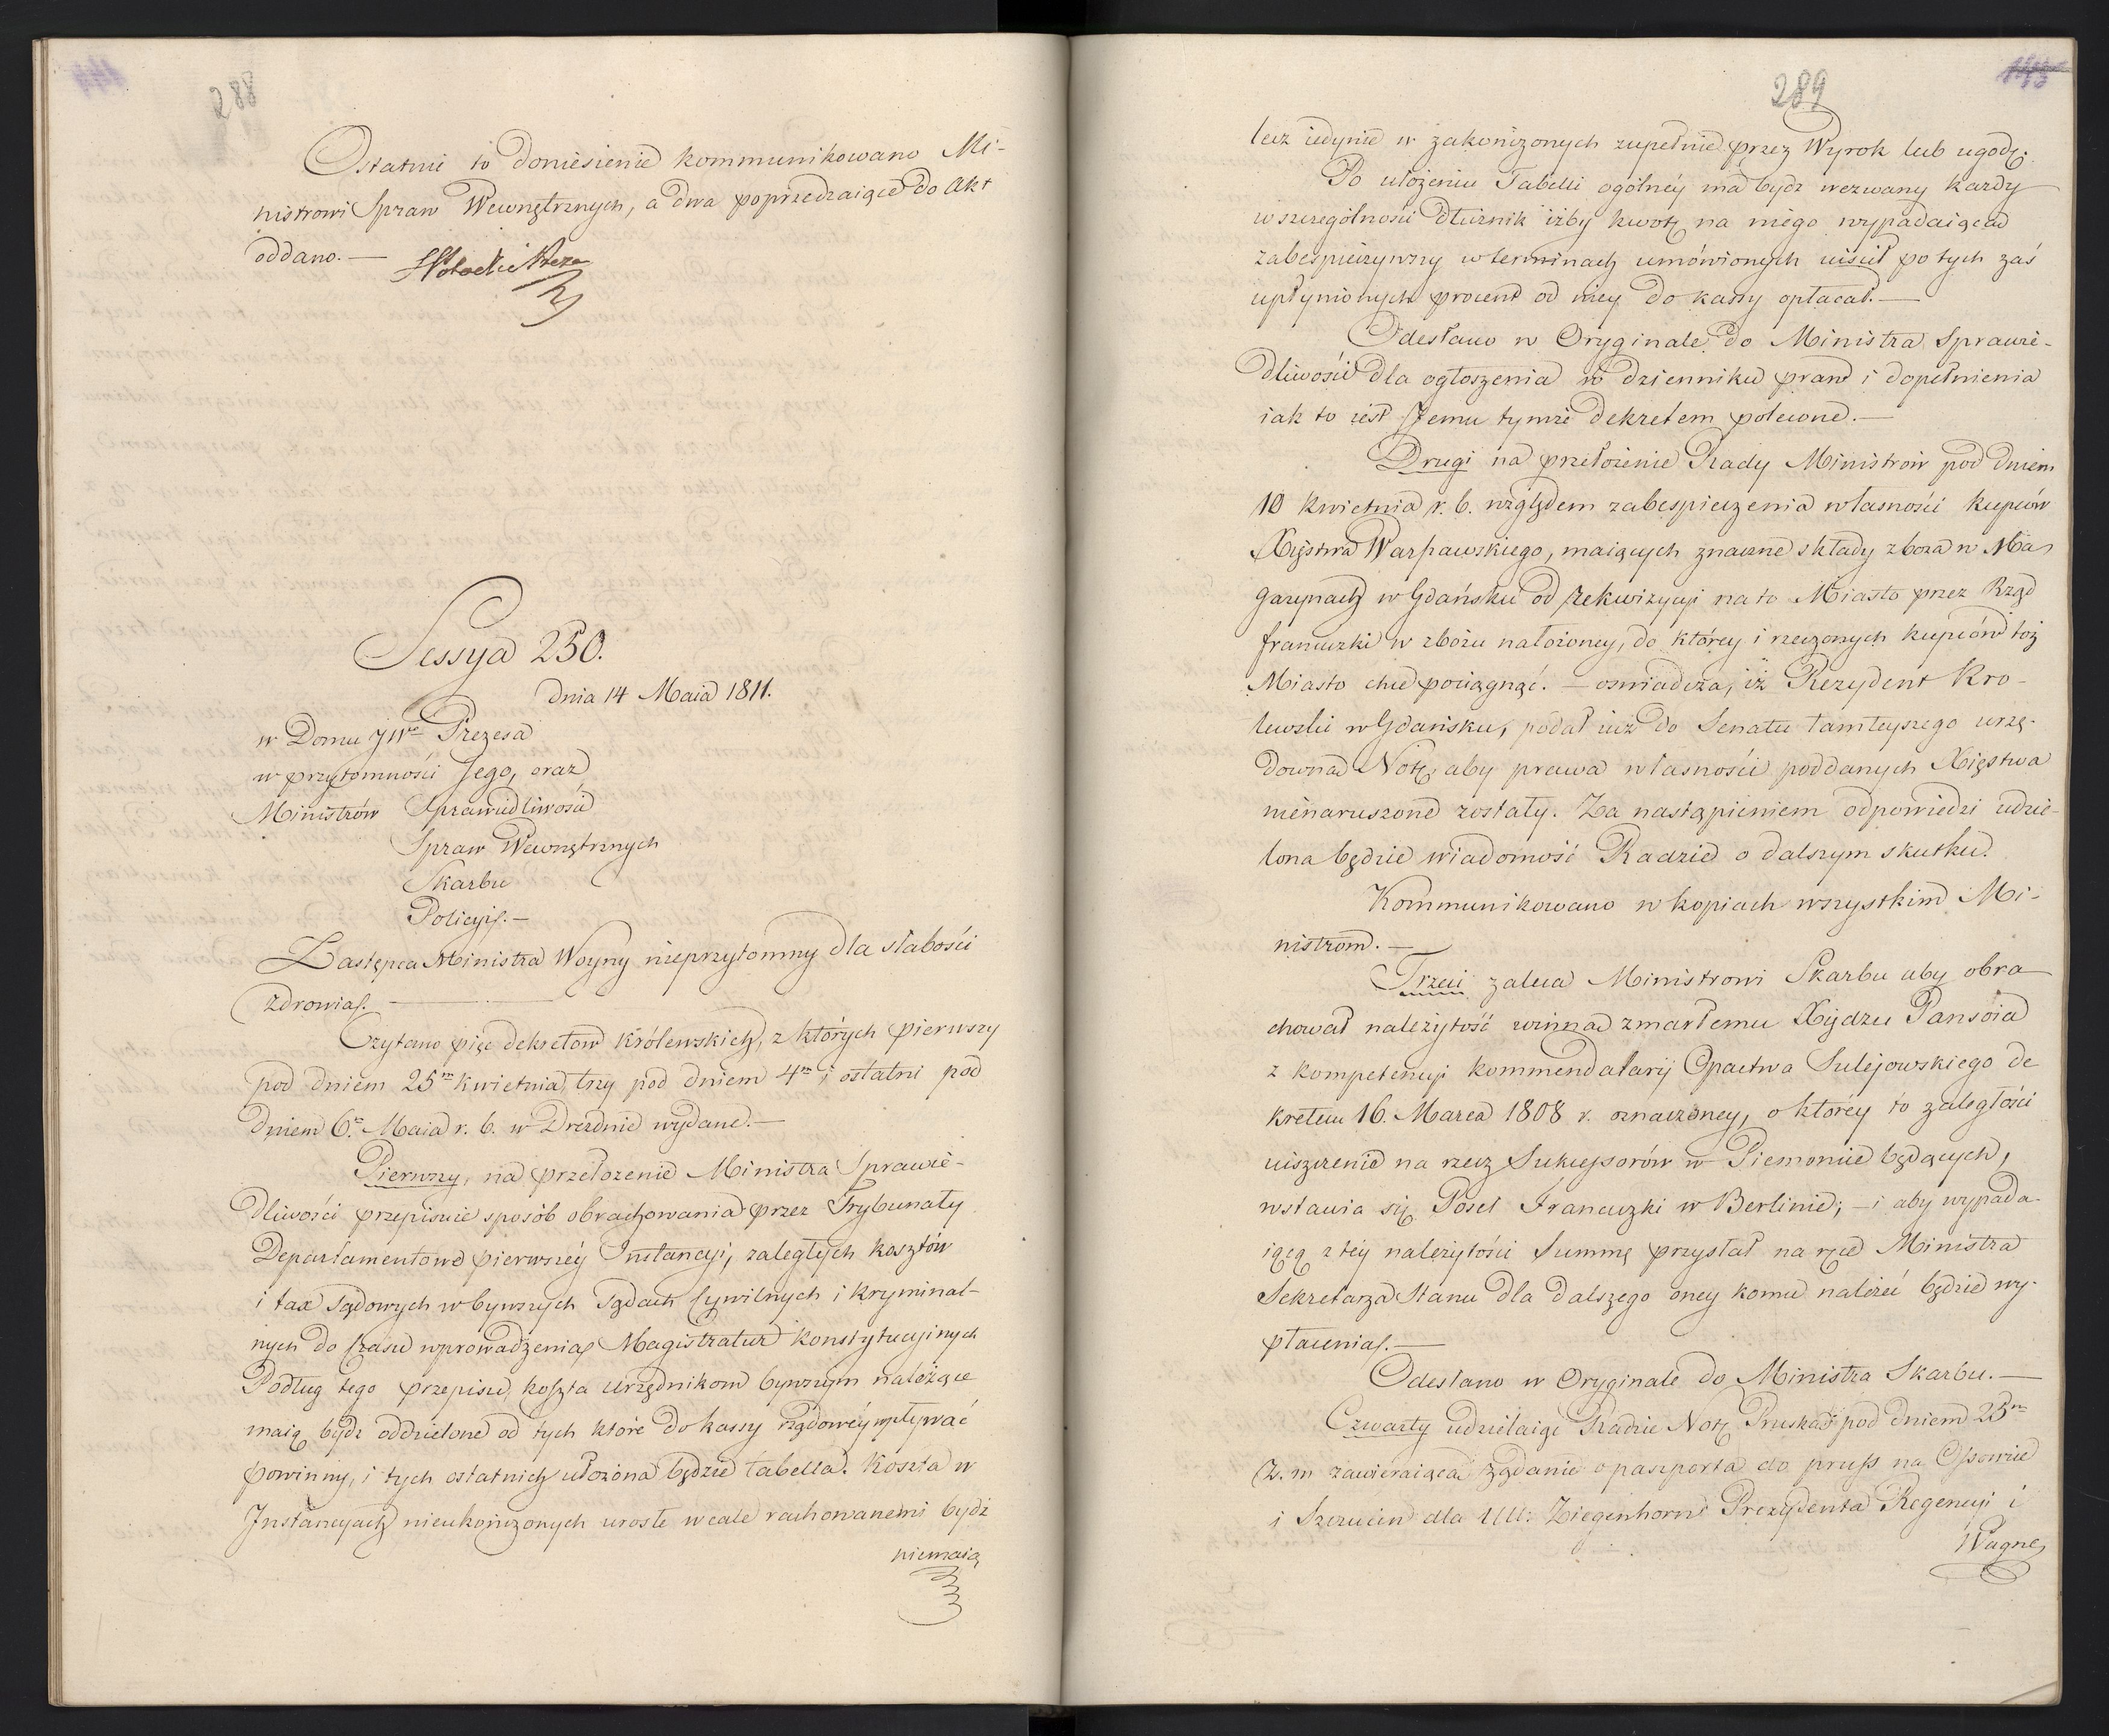 288
Ostatnie to doniesienie kommunikowano Mi-
nistrowi Spraw Wewnętrznych, a dwa poprzedzaiące do Akt
oddano. —
Sessya 250.
dnia 14 Maia 1811.
w Domu JWo Prezesa
w przytomności Jego, oraz
Ministrów Sprawiedliwości
Spraw Wewnętrznych
Skarbu
Policyi. —
Zastępca Ministra Woyny nieprzytomny dla słabości
zdrowia. —
Czytano pięć dekretów Królewskich, z których pierwszy
pod dniem 25m kwietnia, trzy pod dniem 4m i ostatni pod
dniem 6m Maia r. b. w Dreznie wydane. —
Pierwszy, na przełożenie Ministra Sprawie-
dliwości przepisuie sposób obrachowania przez Trybunały
Departamentowe pierwszéy Instancyi, zaległych kosztów
i tax sądowych w bywszych Sądach Cywilnych i kryminal-
nych do czasu wprowadzenia Magistratur konstytucyinych
Podług tego przepisu, koszta urzędnikom bywszym należące
maią bydź oddzielone od tych które do kassy rządowéy wpływać
powinny, i tych ostatnich ułożona będzie tabella. Koszta w
Instancyach nieukończonych urosłe wcale rachowanemi bydź
niemaią
289
lecz iedynie w zakończonych zupełnie przez Wyrok lub ugodę.
Po ułożeniu Tabelli ogólnéy ma bydź wezwany każdy
w szczególności dłużnik iżby kwotę na niego wypadaiącą
zabespieczywszy w terminach umówionych uiścił po tych zaś
upłynionych procent od niey do kassy opłacał. —
Odesłano w Oryginale do Ministra Sprawie-
dliwości dla ogłoszenia w dzienniku praw i dopełnienia
iak to iest Jemu tymże dekretem polecone. —
Drugi na przełożenie Rady Ministrów pod dniem
10 kwietnia r. b. względem zabespieczenia własności kupców
Xięstwa Warszawskiego, maiących znaczne składy zboża w Ma-
gazynach w Gdańsku od rekwizycyi na to Miasto przez Rząd
francuzki w zbożu nałożoney, do którey i rzeczonych kupców toż
Miasto chce pociągnąć. — oświadcza, iż Rezydent Kró-
lewski w Gdańsku, podał iuż do Senatu tamteyszego urzę-
downą Notę, aby prawa własności poddanych Xięstwa
nienaruszone zostały. Za nastąpieniem odpowiedzi udzie-
lona będzie wiadomość Radzie o dalszym skutku.
Kommunikowano w kopiach wszystkim Mi-
nistrom. —
Trzeci zaleca Ministrowi Skarbu aby obra
chował należytość winną zmarłemu Xiędzu Pansoia
z kompetencyi kommendataryi Opactwa Sulejowskiego de
kretem 16. Marca 1808 r. oznaczoney, o którey to zaległości
uiszczenie na rzecz Sukcessorów w Piemoncie będących,
wstawia się Poseł Francuzki w Berlinie; — i aby wypada-
iącą z tey należytości Summę przysłał na ręce Ministra
Sekretarza Stanu dla dalszego oney komu należeć będzie wy-
płacenia. —
Odesłano w Oryginale do Ministra Skarbu. —
Czwarty udzielaiąc Radzie Notę Pruską pod dniem 23m
z. m zawieraiącą żądanie o paszporta do pruss na Ossowiec
i Szczucin dla UU: Ziegenhorn Prezydenta Regencyi i
Wagne,